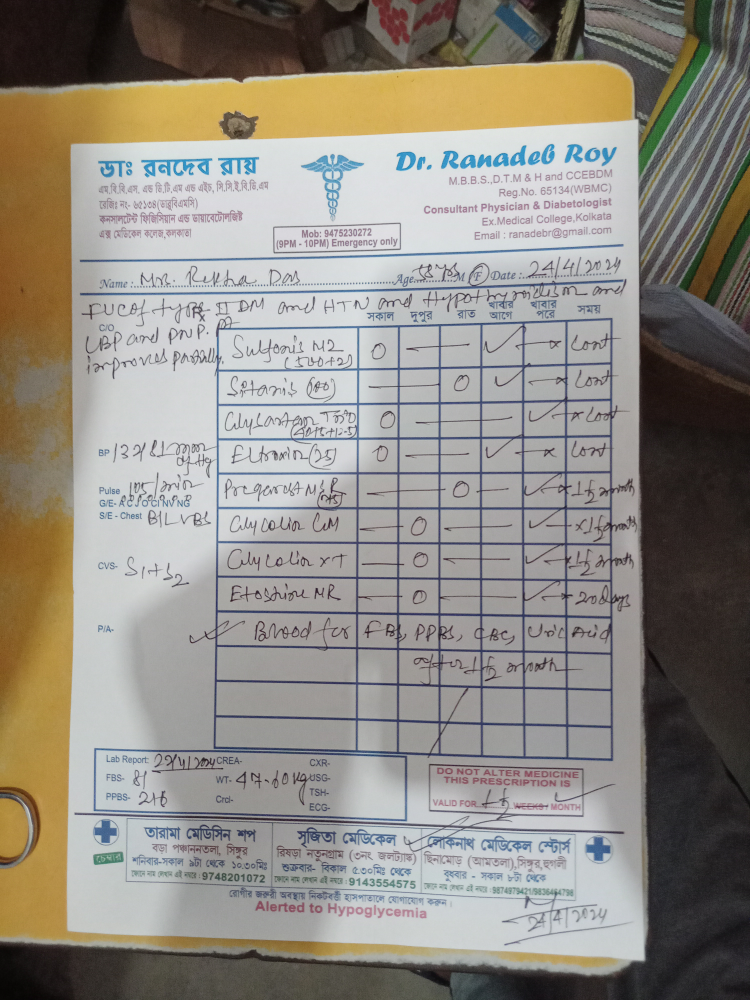 ডাঃ রনদেব রায়
এম.বি.বি.এস. এন্ড ডি.টি.এম এন্ড এইচ, সি.সি.ই.বি.ডি.এম
রেজিঃ নং- ৬৫১৩৪(ডাব্লুবিএমসি)
কনসালটেন্ট ফিজিসিয়ান এন্ড ডায়াবেটোলজিষ্ট
এক্স মেডিকেল কলেজ,কলকাতা
Mob: 9475230272
(9PM - 10PM) Emergency only
Dr. Ranadeb Roy
M.B.B.S.,D.T.M & H and CCEBDM
Reg.No. 65134(WBMC)
Consultant Physician & Diabetologist
Ex.Medical College,Kolkata
Email : ranadebr@gmail.com
Name: Mrs. Rekha Das Age 58 yrs M F Date: 24/4/2024
FUC of type II DM and HTN and Hypothyroidism and
C/O LBP and PNP.
improves partially.
সকাল দুপুর রাত খাবার আগে খাবার পরে সময়
(500+2) O — ✓ — x Cont
(100) — O ✓ — x Cont
O — ✓ x Cont
BP 132/81 mm of Hg
(25) O — ✓ — x Cont
Pulse 105/min
— O — ✓ x 1½ month
G/E- A C J O CI NV NG
S/E - Chest B/L VBS
— O — ✓ x 1½ month
CVS- S1+S2
— O — ✓ x 1½ month
MR — O — ✓ x 20 days
P/A-
✓ Blood for FBS, PPBS, CBC, Uric Acid
after 1½ month
Lab Report: 22/4/2024 CREA- CXR-
FBS- 81 WT- 47.60 kg USG-
PPBS- 216 Crcl- TSH-
ECG-
DO NOT ALTER MEDICINE
THIS PRESCRIPTION IS
VALID FOR 1½ WEEKS / MONTH
চেম্বার
তারামা মেডিসিন শপ
বড়া পঞ্চাননতলা, সিঙ্গুর
শনিবার-সকাল ৯টা থেকে ১০.৩০মিঃ
ফোনে নাম লেখান এই নম্বরে : 9748201072
সৃজিতা মেডিকেল
রিষড়া নতুনগ্রাম (৩নং জলট্যাঙ্ক)
শুক্রবার- বিকাল ৫.৩০মিঃ থেকে
ফোনে নাম লেখান এই নম্বরে : 9143554575
লোকনাথ মেডিকেল স্টোর্স
ছিনামোড় (আমতলা),সিঙ্গুর,হুগলী
বুধবার - সকাল ৮টা থেকে
রোগীর জরুরী অবস্থায় নিকটবর্তী হাসপাতালে যোগাযোগ করুন।
Alerted to Hypoglycemia
24/4/2024